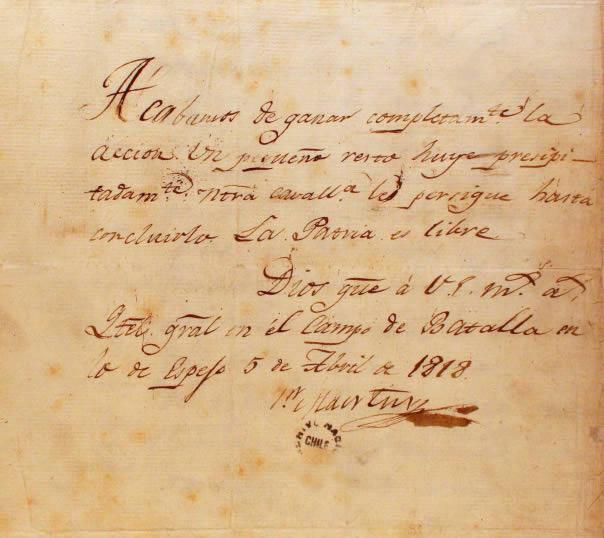 Acabamos de ganar completam.te la
accion. Un pequeño resto huye presipi-
tadam.te Ntra cavall.a le persigue hasta
concluirlo. La Patria es libre
Dios gue à V.S. m.s a.s
Qtel. gral en el Campo de Batalla en
lo de Espejo 5 de Abril de 1818.
Sn Martin
ARCHIVO NACIONAL
CHILE